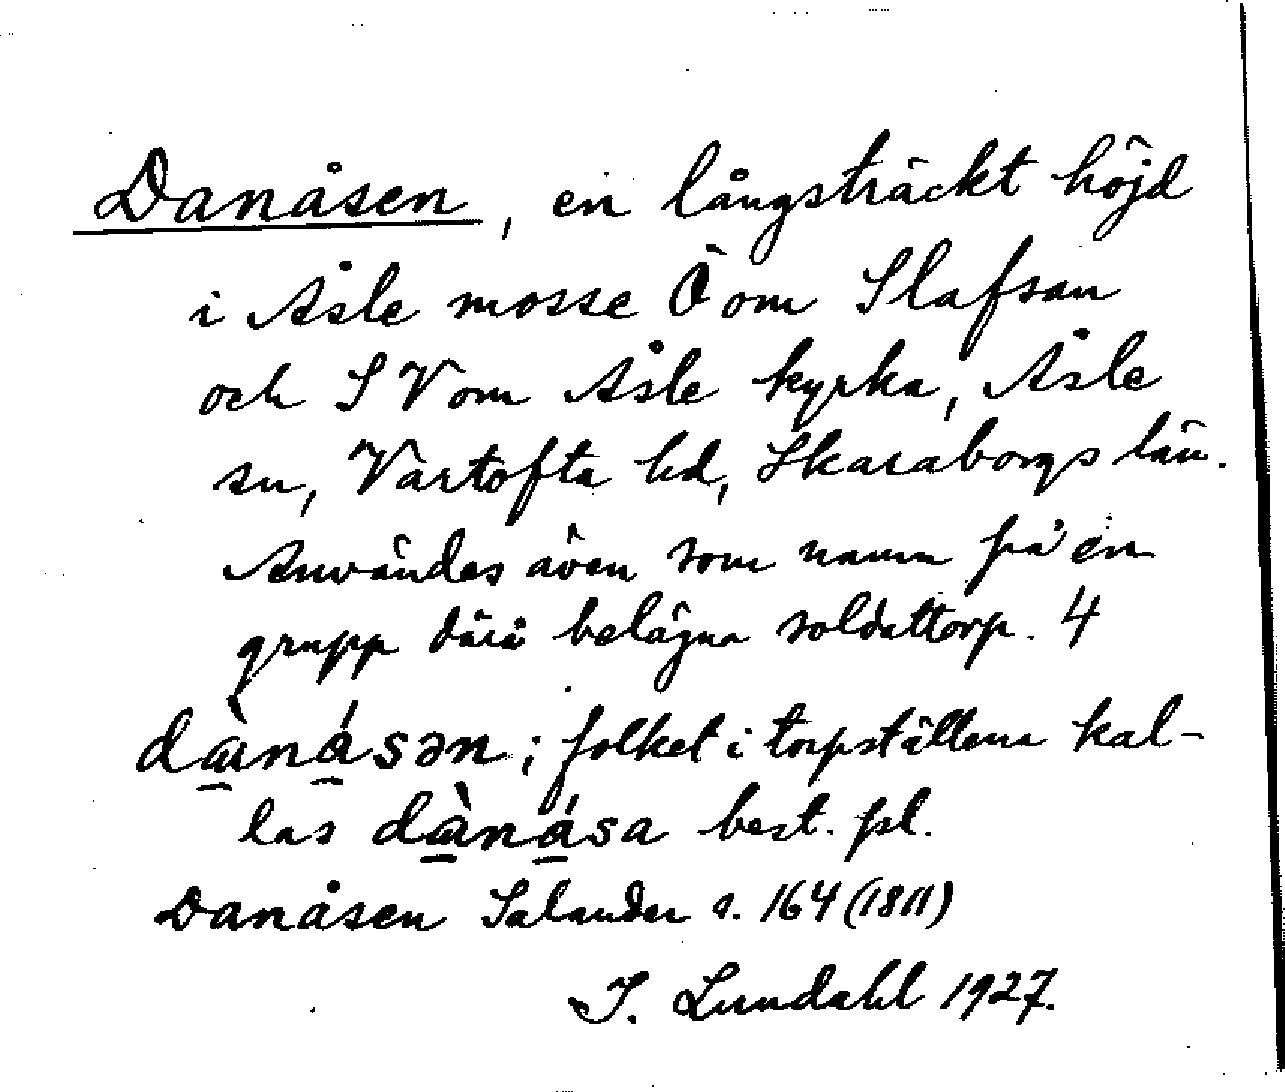 Danåsen, en långsträckt höjd
i Åsle mosse Ö om Slafsan
och S V om Åsle kyrka, Åsle
sn, Vartofta hd, Skaraborgs län.
Användes även som namn på en
grupp därå belägna soldattorp. 4
dànásən; folket i torpställena kal-
las dànása best. pl.
Danåsen Salander s. 164 (1811)
I. Lundahl 1927.